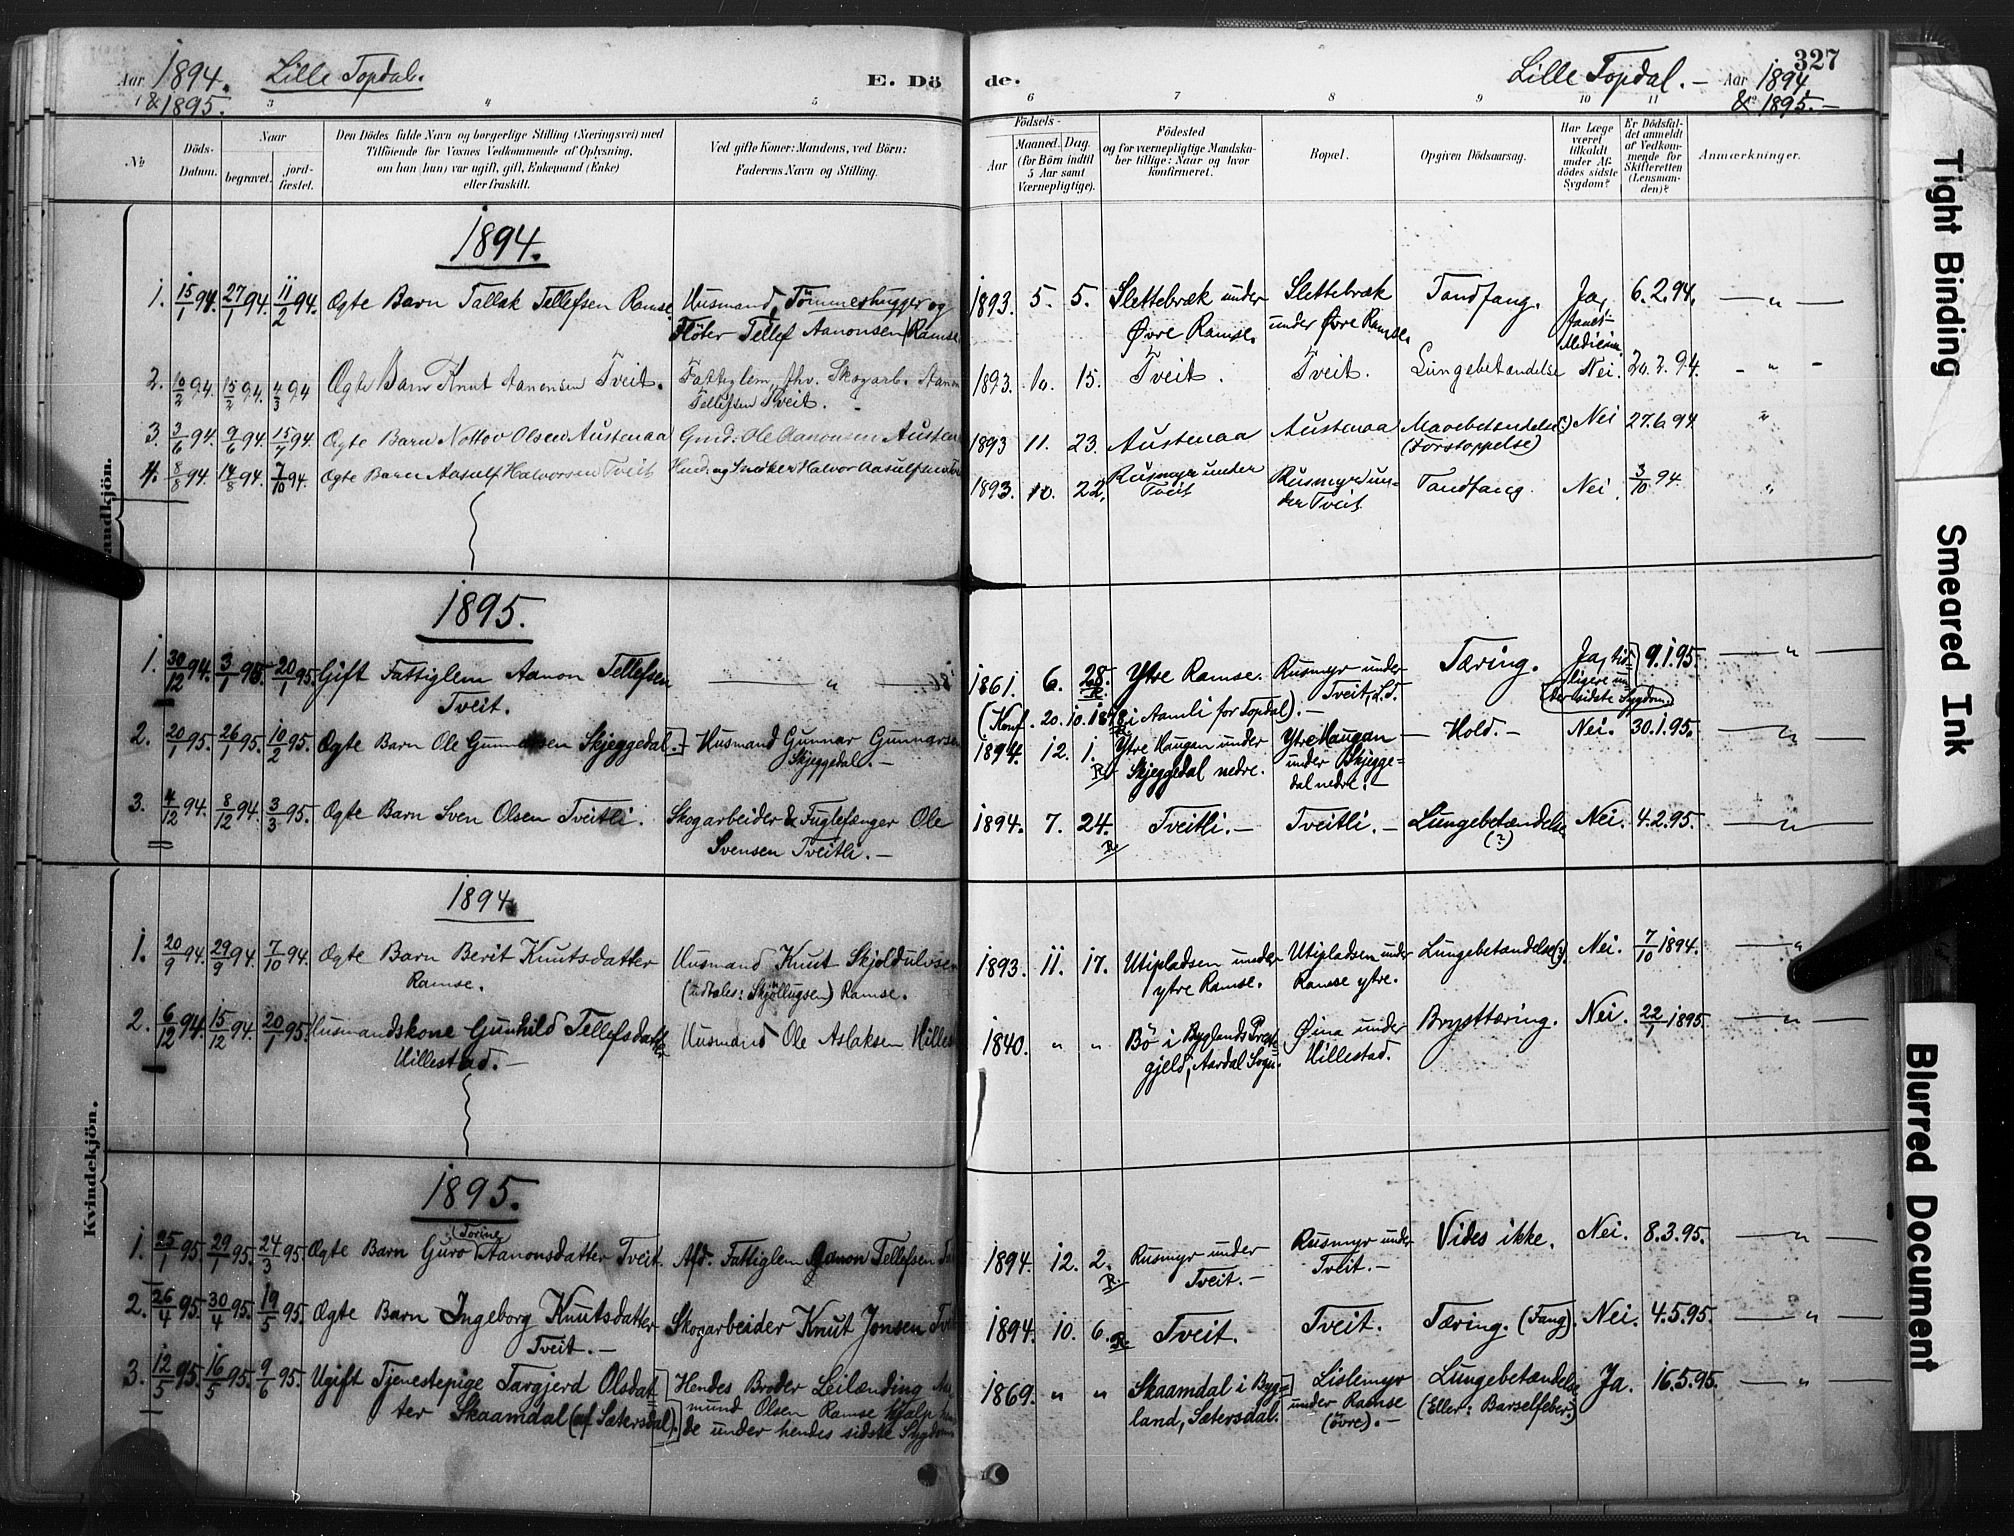 Aar 1894. Lille Topdal. E. Dö
& 1895.
de. Lille Topdal. – Aar 1894
327
& 1895. –
3 4 5
6 7 8 9 10 11
№
Döds-
Datum.
Naar
begravet.
jord-
fæstet.
Den Dödes fulde Navn og borgerlige Stilling (Næringsvei) med
Tilföiende for Voxnes Vedkommende af Oplysning,
om han (hun) var ugift, gift, Enkemand (Enke)
eller fraskilt.
Ved gifte Koner: Mandens, ved Börn:
Faderens Navn og Stilling.
Födsels-
Aar
Maaned. Dag.
(for Börn indtil
5 Aar samt
Værnepligtige).
Födested
og for værnepligtige Mandska-
ber tillige: Naar og hvor
konfirmeret.
Bopæl.
Opgiven Dödsaarsag.
Har Læge
været
tilkaldt
under Af-
dödes sidste
Sygdom?
Er Dödsfal-
det anmeldt
af Vedkom-
mende for
Skifteretten
(Lensman-
den)?
Anmærkninger.
andkjön.
1894.
1. 15/1 94. 27/1 94. 11/2 94. Ægte Barn Tallak Tellefsen Ramse. Husmand, Tömmerhugger og
Flöter Tellef Aanonsen (Ramse
1893. 5. 5. Slettebræk under
Øvre Ramse.
Slettebræk
under Øvre Ramse.
Tandfang. Ja,
Medicin.
6.2.94. — „ —
2. 10/2 94. 15/2 94. 4/3 94 Ægte Barn Knut Aanonsen Tveit. Fattiglem, fhv. Skogarb. Aanon
Tellefsen Tveit.
1893. 10. 15. Tveit. Tveit. Lungebetændelse Nei. 20.3.94. - „ -
3. 3/6 94. 9/6 94. 15/7 94. Ægte Barn Nottov Olsen Austenaa Gmd: Ole Aanonsen Austen
1893 11. 23. Austenaa Austenaa Mavebetændelse(?)
(Forstoppelse)
Nei 27.6.94 „
4. 8/8 94. 14/8 94. 7/10 94. Ægte Barn Aasulf Halvorsen Tveit Husmd. og Snedker Halvor Aasulfsen
1893. 10. 22. Rusmyr under
Tveit
Rusmyr un-
der Tveit
Tandfang. Nei. 3/10 94. „
1895.
1. 30/12 94. 3/1 95. 20/1 95. Gift Fattiglem Aanon Tellefsen
Tveit.
— „ —
1861. 6. 28. Ytre Ramse. Rusmyr under
Tveit, L.T.
Tæring. Ja, tid-
ligere un-
der sidste Sygdom.
9.1.95. — „ —
(Konf. 20.10.1878 i Aamli for Topdal). –
2. 20/1 95. 26/1 95. 10/2 95. Ægte Barn Ole Gunnarsen Skjeggedal. Husmand Gunnar Gunnarsen
Skjeggedal. –
1894. 12. 1. Ytre Haugan under
Skjeggedal nedre.
Ytre Haugan
under Skjegge-
dal nedre. –
– Hold. – Nei. 30.1.95. — „ —
3. 4/12 94. 8/12 94. 3/3 95. Ægte Barn Sven Olsen Tveitli. Skogarbeider & Fuglefænger Ole
Svensen Tveitli. –
1894. 7. 24. Tveitli. – Tveitli. – Lungebetændelse
(?)
Nei. 4.2.95. — „ —
Kvindekjön.
1894.
1. 20/9 94. 29/9 94. 7/10 94. Ægte Barn Berit Knutsdatter
Ramse.
Husmand Knut Skjoldulvsen
(udtales: Skjöllugsen) Ramse.
1893. 11. 17. Utipladsen under
ytre Ramse.
Utipladsen under
Ramse ytre.
Lungebetændelse(?). Nei. 7/10 1894. — „
2. 6/12 94. 15/12 94. 20/1 95. Husmandskone Gunhild Tellefsdatter
Hillestad. –
Husmand Ole Aslaksen Hilles
1840. „ „ Bö i Byglands Præste-
gjeld, Aardal Sogn.
Øina under
Hillestad.
Brysttæring. Nei. 22/1 1895. — „ —
1895.
1. 25/1 95. 29/1 95. 24/3 95. Ægte Barn Guro (Torine) Aanonsdatter Tveit. Afd. Fattiglem Aanon Tellefsen
1894. 12. 2. Rusmyr under
Tveit. –
Rusmyr under
Tveit. –
Vides ikke. Nei. 8.3.95. — „ —
2. 26/4 95. 30/4 95. 19/5 95. Ægte Barn Ingeborg Knutsdatter
Tveit. –
Skogarbeider Knut Jonsen Tveit
1894. 10. 6. Tveit. Tveit. Tæring. (Fang). Nei. 4.5.95. — „ —
3. 12/5 95. 16/5 95. 9/6 95. Ugift Tjenestepige Targjerd Olsdat-
ter Skaamdal (af Sætersdal).
Hendes Broder Leilænding Aa-
mund Olsen Ramse hjalp hen-
de under hendes sidste Sygdom
1869. „ „ Skaamdal i Byg-
land, Sætersdal.
Lislemyr
under Ramse
(övre). –
Lungebetændelse
(Eller: Barselfeber?)
Ja. 16.5.95. — „ —
Tight Binding
Smeared Ink
Blurred Document